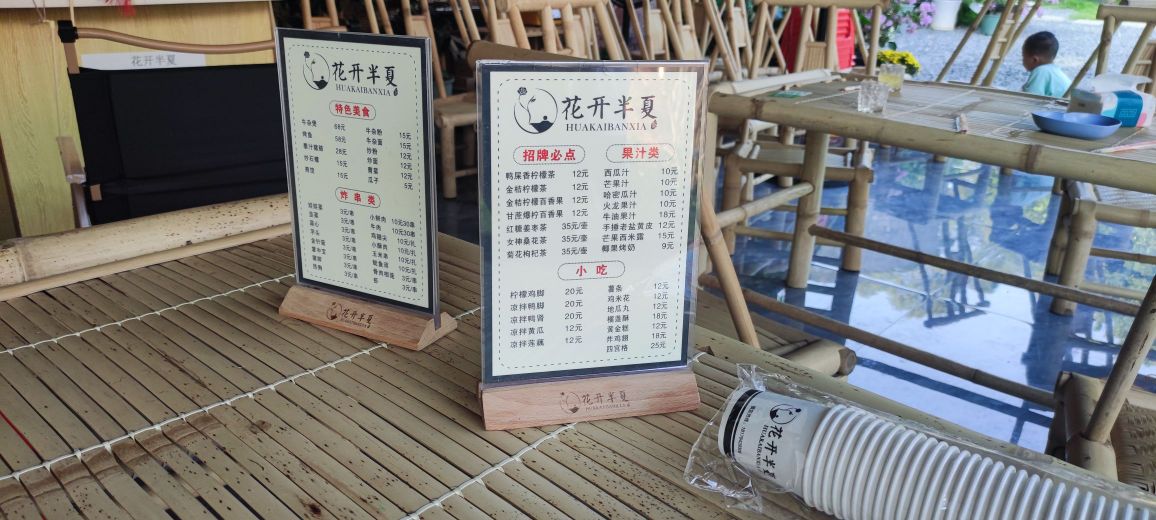 花开半夏
花开半夏
HUAKAIBANXIA
特色美食
牛杂煲 68元
烤鱼 58元
28元
炒石螺 15元
15元
牛杂粉 15元
牛杂面 15元
炒粉 12元
炒面 12元
12元
瓜子 5元
炸串类
3元/串
韭菜 3元/串
3元/串
3元/串
3元/串
3元/串
3元/串
热狗 3元/串
小酥肉 10元30串
牛肉 10元30串
鸡翅尖 10元/扎
小藤肉 10元/扎
玉米串 10元/扎
鱿鱼须 10元/扎
骨肉相连 3元/串
虾 3元/串
花开半夏
HUAKAIBANXIA
花开半夏
HUAKAIBANXIA
招牌必点
鸭屎香柠檬茶 12元
金桔柠檬茶 12元
金桔柠檬百香果 12元
甘蔗爆柠百香果 12元
红糖姜枣茶 35元/壶
女神桑花茶 35元/壶
菊花枸杞茶 35元/壶
果汁类
西瓜汁 10元
芒果汁 10元
哈密瓜汁 10元
火龙果汁 10元
牛油果汁 18元
手捶老盐黄皮 12元
芒果西米露 15元
椰果烤奶 9元
小吃
柠檬鸡脚 20元
凉拌鸭脚 20元
凉拌鸭肾 20元
凉拌黄瓜 12元
凉拌莲藕 12元
薯条 12元
鸡米花 12元
地瓜丸 12元
榴莲酥 18元
黄金糕 12元
炸鸡翅 18元
四宫格 25元
花开半夏
HUAKAIBANXIA
花开半夏
HUAKAIBANXIA